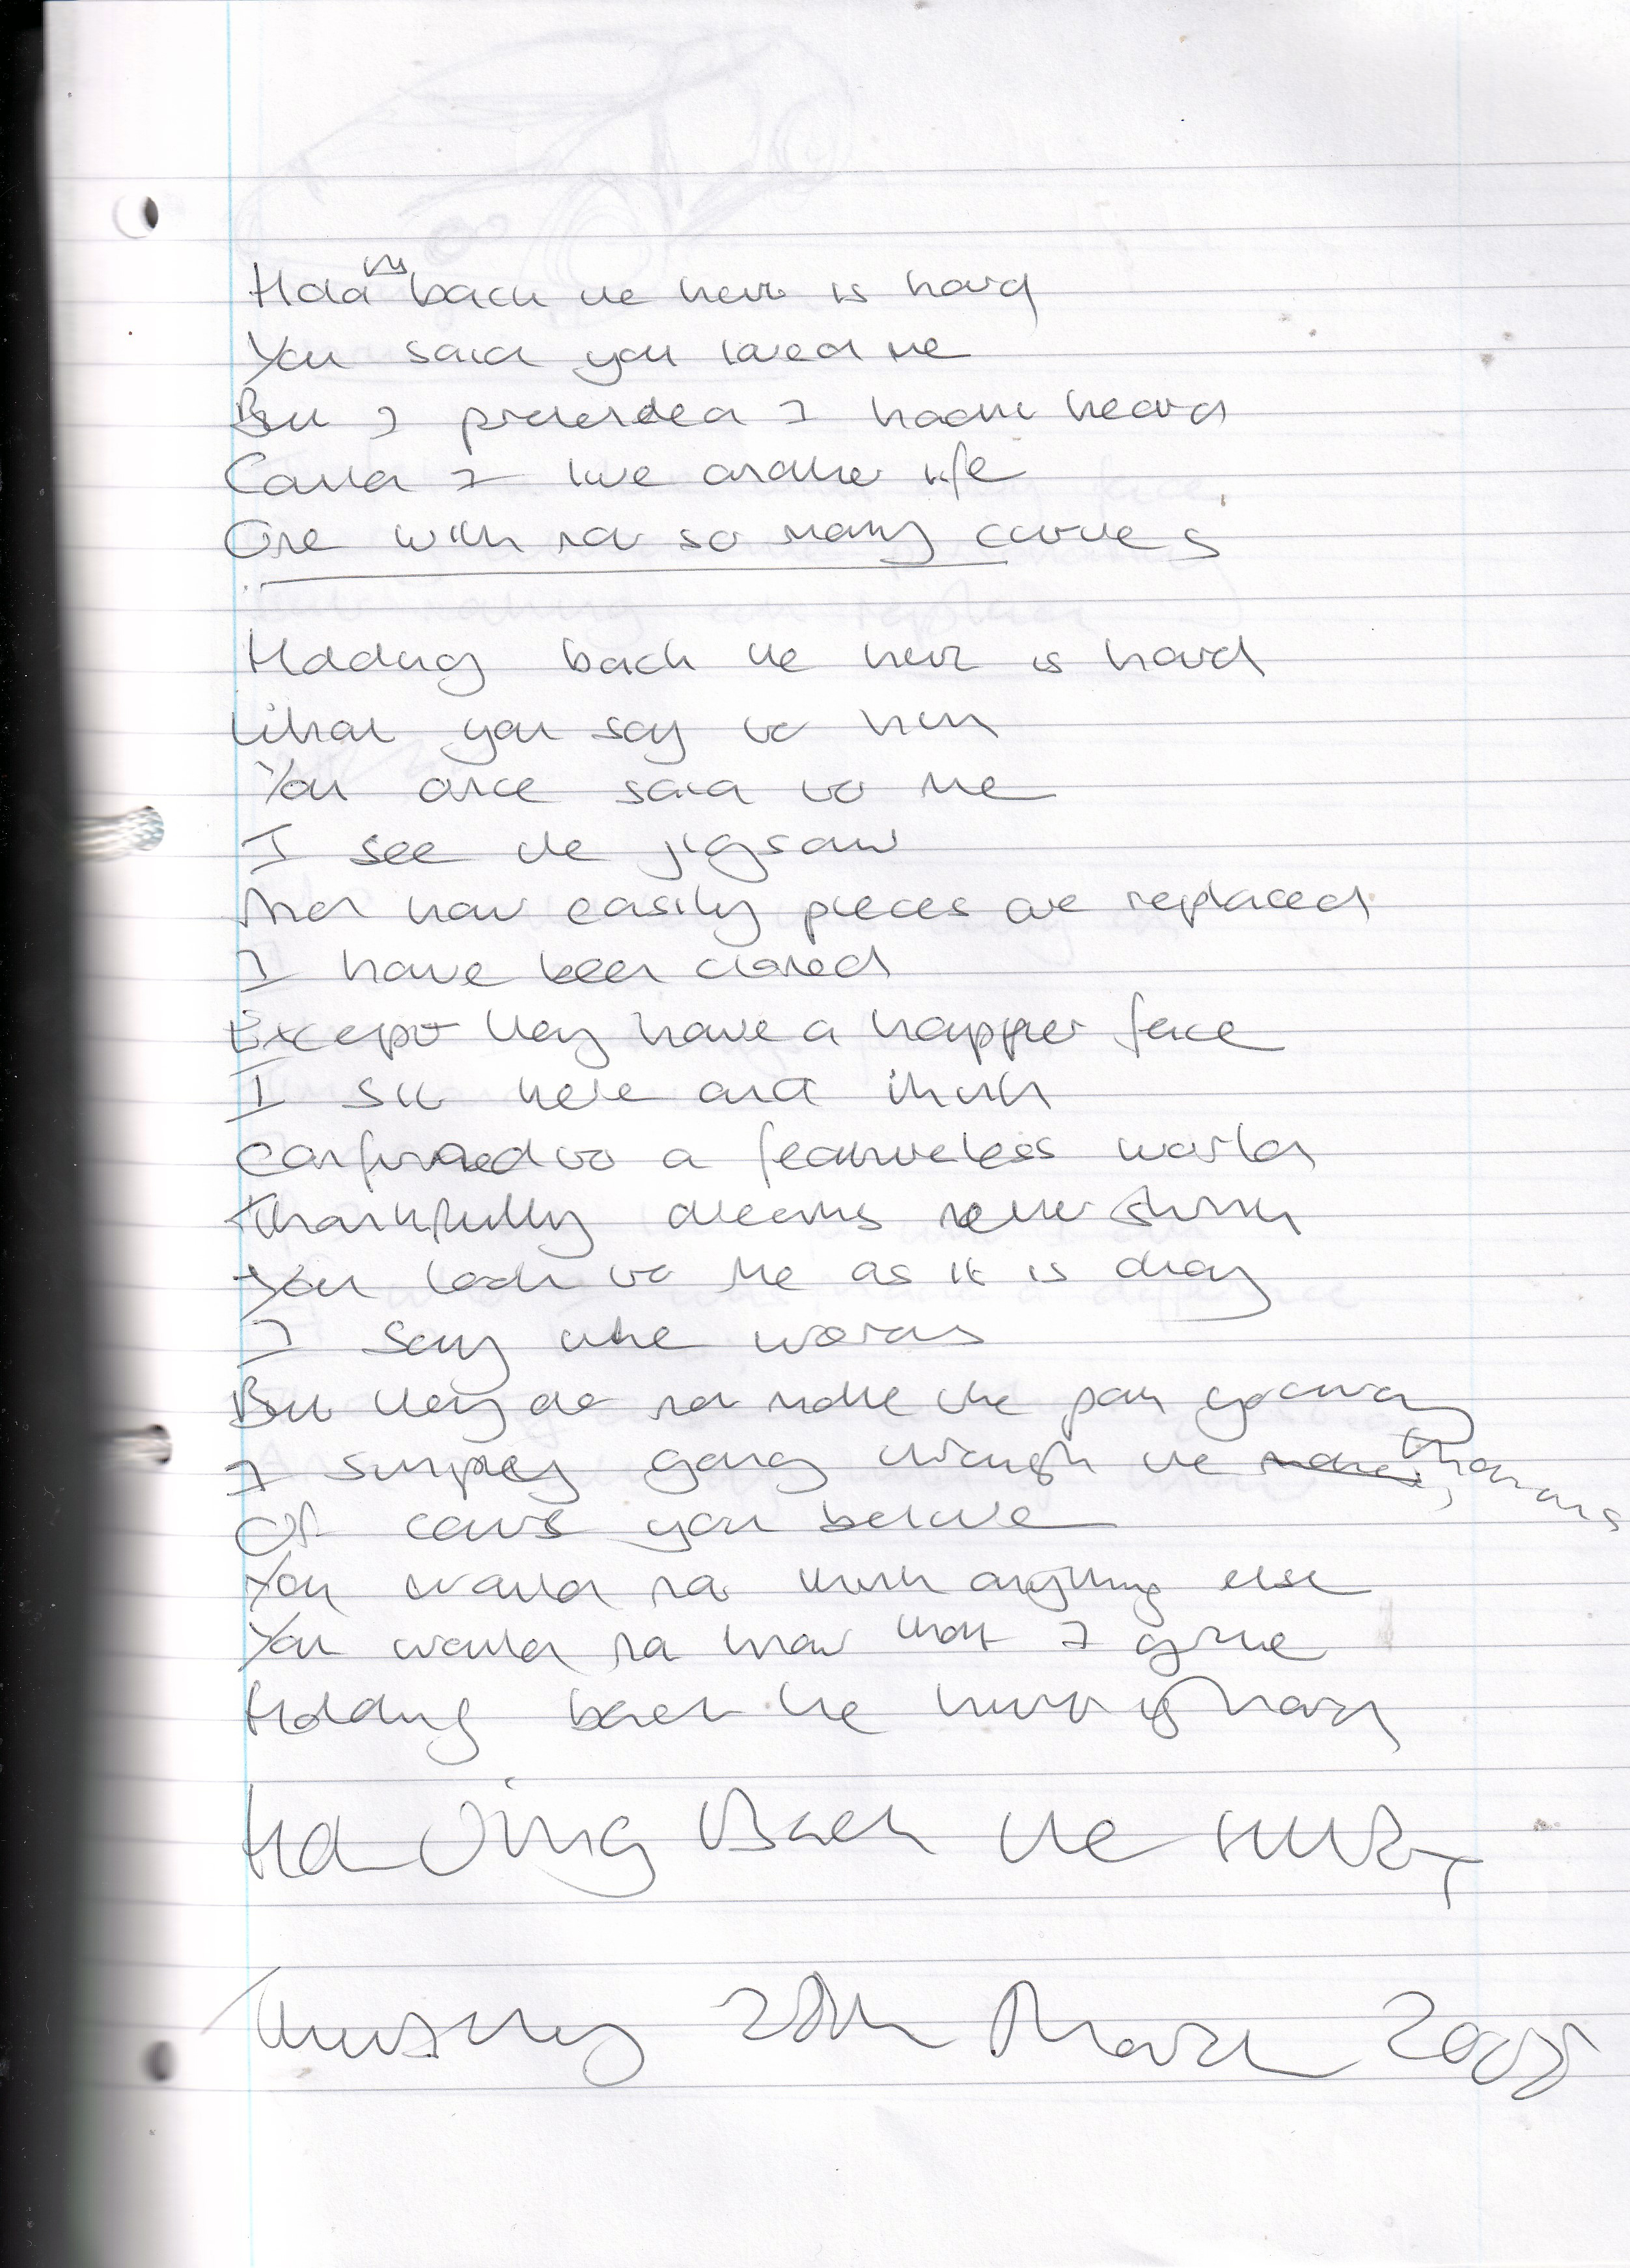 Holding back the hurt is hard
You said you loved me
But I pretended I hadn't heard
Could I live another life
One with not so many curves
Holding back the hurt is hard
What you say to him
You once said to me
I see the jigsaw
And how easily pieces are replaced
I have been cloned
Except they have a happier face
I sit here and think
Confined to a featureless world
Thankfully dreams never shrink
You look to me as it is okay
I say the words
But they do not make the pain go away
I simpley going through the motions
Of course you believe
You would not think anything else
You would not know that I grieve
Holding back the hurt is hard
Holding Back the Hurt
Thursday 20th March 2008